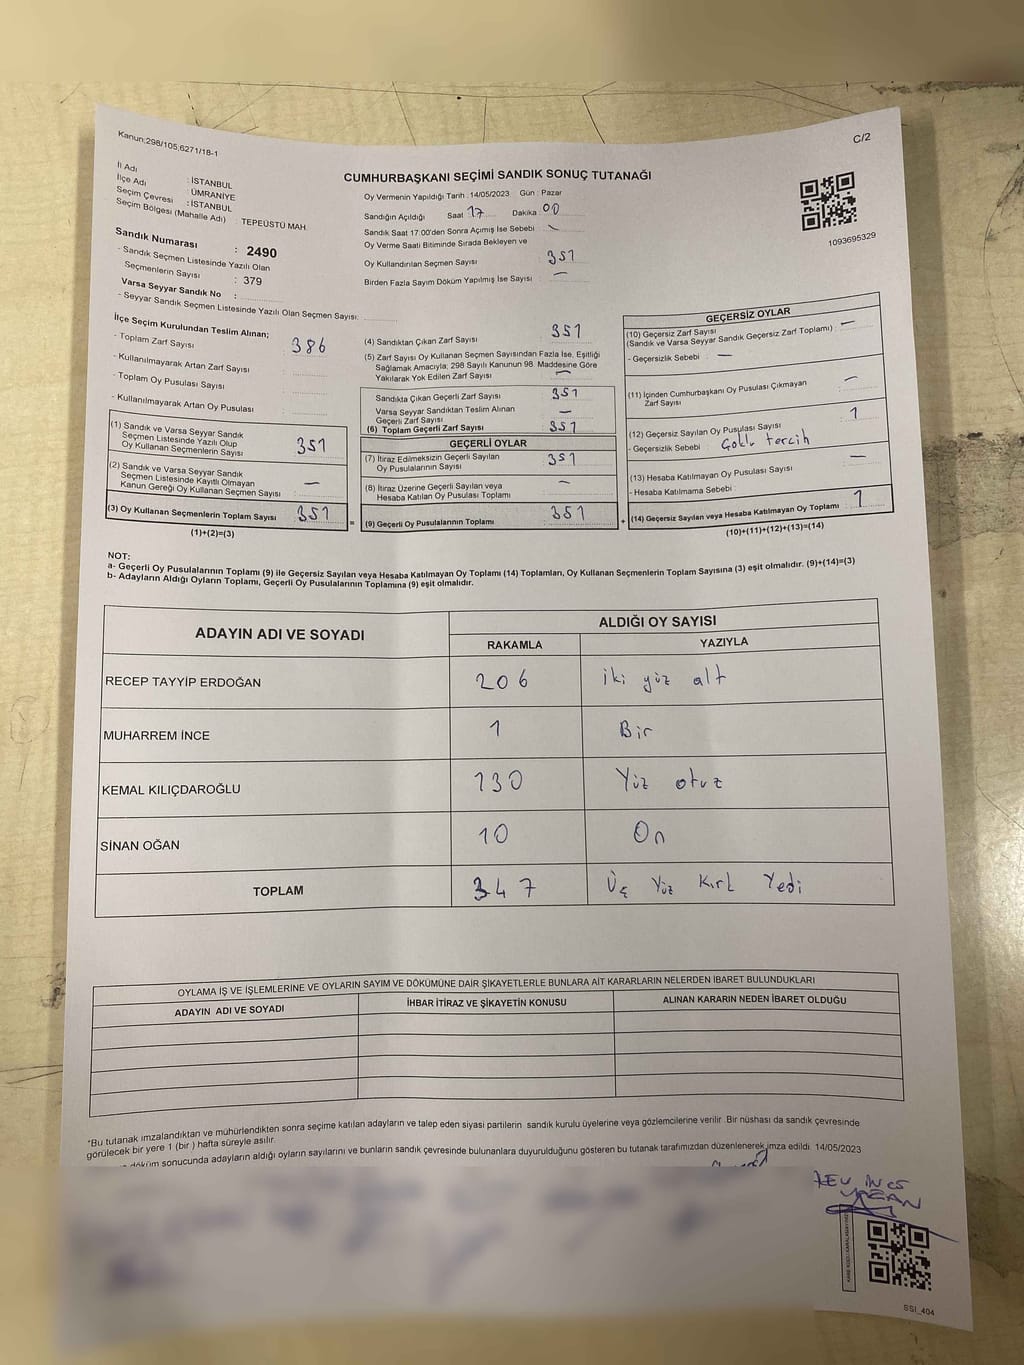 Kanun;298/105;6271/18-1
C/2
CUMHURBAŞKANI SEÇİMİ SANDIK SONUÇ TUTANAĞI
İl Adı : İSTANBUL
İlçe Adı : ÜMRANİYE
Seçim Çevresi : İSTANBUL
Seçim Bölgesi (Mahalle Adı) : TEPEÜSTÜ MAH.
Sandık Numarası : 2490
- Sandık Seçmen Listesinde Yazılı Olan
Seçmenlerin Sayısı : 379
Varsa Seyyar Sandık No :
- Seyyar Sandık Seçmen Listesinde Yazılı Olan Seçmen Sayısı:
Oy Vermenin Yapıldığı Tarih :14/05/2023 Gün : Pazar
Sandığın Açıldığı Saat 17 Dakika : 00
Sandık Saat 17:00'den Sonra Açımış İse Sebebi
Oy Verme Saati Bitiminde Sırada Bekleyen ve
Oy Kullandırılan Seçmen Sayısı : 351
Birden Fazla Sayım Döküm Yapılmış İse Sayısı : —
1093695329
İlçe Seçim Kurulundan Teslim Alınan;
- Toplam Zarf Sayısı : 386
- Kullanılmayarak Artan Zarf Sayısı
- Toplam Oy Pusulası Sayısı
- Kullanılmayarak Artan Oy Pusulası
(1) Sandık ve Varsa Seyyar Sandık
Seçmen Listesinde Yazılı Olup
Oy Kullanan Seçmenlerin Sayısı : 351
(2) Sandık ve Varsa Seyyar Sandık
Seçmen Listesinde Kayıtlı Olmayan
Kanun Gereği Oy Kullanan Seçmen Sayısı : —
(3) Oy Kullanan Seçmenlerin Toplam Sayısı : 351
(1)+(2)=(3)
(4) Sandıktan Çıkan Zarf Sayısı : 351
(5) Zarf Sayısı Oy Kullanan Seçmen Sayısından Fazla İse, Eşitliği
Sağlamak Amacıyla; 298 Sayılı Kanunun 98. Maddesine Göre
Yakılarak Yok Edilen Zarf Sayısı : —
Sandıkta Çıkan Geçerli Zarf Sayısı : 351
Varsa Seyyar Sandıktan Teslim Alınan
Geçerli Zarf Sayısı : —
(6) Toplam Geçerli Zarf Sayısı : 351
GEÇERLİ OYLAR
(7) İtiraz Edilmeksizin Geçerli Sayılan
Oy Pusulalarının Sayısı : 351
(8) İtiraz Üzerine Geçerli Sayılan veya
Hesaba Katılan Oy Pusulası Toplamı : —
= (9) Geçerli Oy Pusulalarının Toplamı : 351
GEÇERSİZ OYLAR
(10) Geçersiz Zarf Sayısı
(Sandık ve Varsa Seyyar Sandık Geçersiz Zarf Toplamı) : —
- Geçersizlik Sebebi : —
(11) İçinden Cumhurbaşkanı Oy Pusulası Çıkmayan
Zarf Sayısı : —
(12) Geçersiz Sayılan Oy Pusulası Sayısı : 1
- Geçersizlik Sebebi : Çoklu tercih
(13) Hesaba Katılmayan Oy Pusulası Sayısı : —
- Hesaba Katılmama Sebebi :
+ (14) Geçersiz Sayılan veya Hesaba Katılmayan Oy Toplamı : 1
(10)+(11)+(12)+(13)=(14)
NOT:
a- Geçerli Oy Pusulalarının Toplamı (9) ile Geçersiz Sayılan veya Hesaba Katılmayan Oy Toplamı (14) Toplamları, Oy Kullanan Seçmenlerin Toplam Sayısına (3) eşit olmalıdır. (9)+(14)=(3)
b- Adayların Aldığı Oyların Toplamı, Geçerli Oy Pusulalarının Toplamına (9) eşit olmalıdır.
ADAYIN ADI VE SOYADI
ALDIĞI OY SAYISI
RAKAMLA YAZIYLA
RECEP TAYYİP ERDOĞAN 206 iki yüz alt
MUHARREM İNCE 1 Bir
KEMAL KILIÇDAROĞLU 130 Yüz otuz
SİNAN OĞAN 10 On
TOPLAM 347 Üç Yüz Kırk Yedi
OYLAMA İŞ VE İŞLEMLERİNE VE OYLARIN SAYIM VE DÖKÜMÜNE DAİR ŞİKAYETLERLE BUNLARA AİT KARARLARIN NELERDEN İBARET BULUNDUKLARI
ADAYIN ADI VE SOYADI İHBAR İTİRAZ VE ŞİKAYETİN KONUSU ALINAN KARARIN NEDEN İBARET OLDUĞU
*Bu tutanak imzalandıktan ve mühürlendikten sonra seçime katılan adayların ve talep eden siyasi partilerin sandık kurulu üyelerine veya gözlemcilerine verilir. Bir nüshası da sandık çevresinde
görülecek bir yere 1 (bir ) hafta süreyle asılır.
döküm sonucunda adayların aldığı oyların sayılarını ve bunların sandık çevresinde bulunanlara duyurulduğunu gösteren bu tutanak tarafımızdan düzenlenerek imza edildi. 14/05/2023
SSI_404